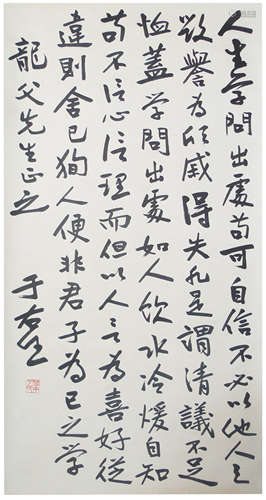 人生学問出處苟可自信不必以他人之
毀譽為欣戚得失非是謂清議不足
恤蓋学問出處如人饮水冷煖自知
苟不信心信理而但以人言為喜好從
違則舍己狥人便非君子為己之学
龍父先生正之
于右任